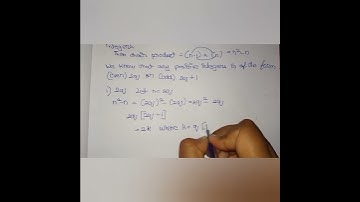 Integers
their product = (n-1) × (n) = n²-n
We know that any positive integers is of the form
(even) 2q or (odd) 2q+1
i) 2q
n²-n = (2q)² - (2q) = 2q² - 2q
2q [2q-1]
= 2k where k = q [